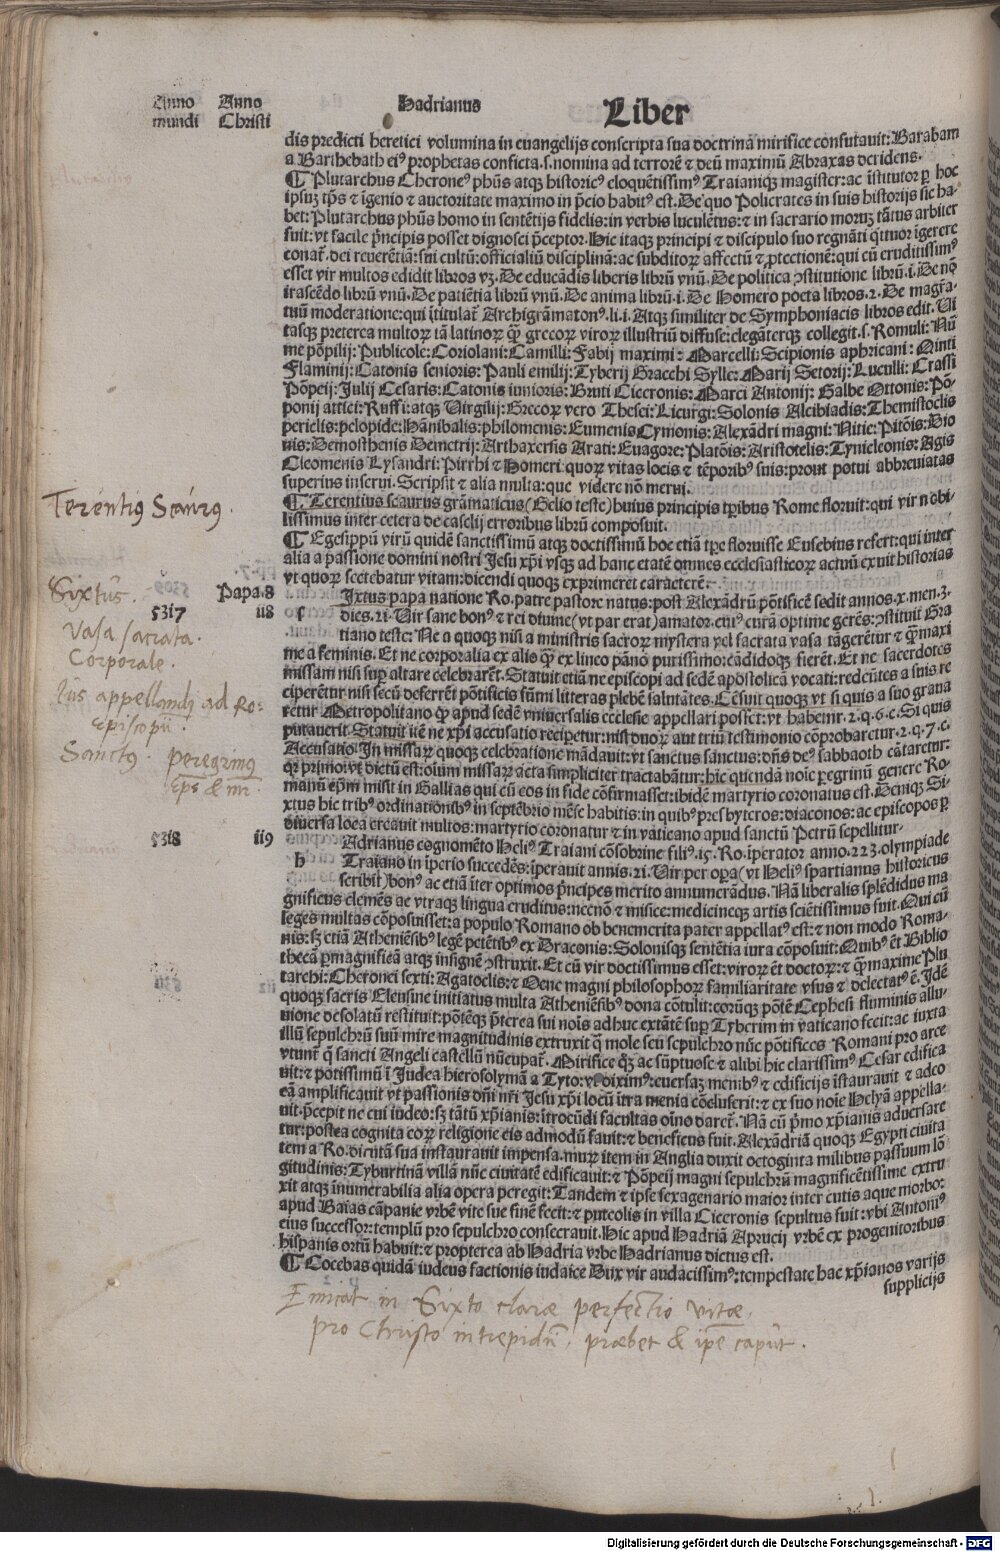 Anno Anno Hadrianus Liber
mundi Christi
dis predicti heretici volumina in euangelijs conscripta sua doctrinā mirifice confutauit: Barabam
a Barthebath eiꝰ prophetas conficta .s. nomina ad terrorē ⁊ deū maximū Abraxas deridens.
¶ Plutarchus Cheroneꝰ phūs atqꝫ historicꝰ eloquētissimꝰ Traianiqꝫ magister: ac īstitutor ꝑ hoc
ipsuꝫ tp̄s ⁊ īgenio ⁊ auctoritate maximo in p̄cio habitꝰ est. De quo Policrates in suis historijs sic ha-
bet: Plutarchus phūs homo in sentētijs fidelis: in verbis luculētus: ⁊ in sacrario moruꝫ tātus arbiter
fuit: vt facile p̄ncipis posset dignosci p̄ceptor. Hic itaqꝫ principi ⁊ discipulo suo regnāti q̄ttuor īgerere
conatꝰ. dei reuerētiā: sui cultū: officialiū disciplinā: ac subditoꝝ affectū ⁊ ꝓtectionē: qui cū eruditissimꝰ
esset vir multos edidit libros vꝫ. De educādis liberis librū vnū. De politica ꝯstitutione librū .i. De nō
irascēdo librū vnū. De patiētia librū vnū. De anima librū .i. De Homero poeta libros .2. De magr̄a-
tuū moderatione: qui ītitulatꝰ Archigrāmatonꝰ .li. i. Atqꝫ similiter de Symphoniacis libros edit. Vi
tasqꝫ preterea multoꝝ tā latinoꝝ q̄ꝫ grecoꝝ viroꝝ illustriū diffuse: elegāterqꝫ collegit .s. Romuli: Nū
me pōpilij: Publicole: Coriolani: Camilli: Fabij maximi: Marcelli: Scipionis aphricani: Qinti
Flaminij: Catonis senioris: Pauli emilij: Tyberij Gracchi Sylle: Marij Setorij: Luculli: Crassi
Pōpeij: Julij Cesaris: Catonis iunioris: Bruti Ciceronis: Marci Antonij: Galbe Ottonis: Pō-
ponij attici: Ruffi: atqꝫ Virgilij: Grecoꝝ vero Thesei: Licurgi: Solonis Alcibiadis: Themistoclis
periclis: pelopide: Hānibalis: philomenis: Eumenis Cymonis: Alexādri magni: Nitie: Pitōis: Dio
nis: Demosthenis Demetrij: Arthaxersis Arati: Euagore: Platōis: Aristotelis: Tymeleonis: Agis
Cleomenis Lysandri: Pirrhi ⁊ Homeri: quoꝝ vitas locis ⁊ tēporibꝰ suis: prout potui abbreuiatas
superius inserui. Scripsit ⁊ alia multa: que videre nō merui.
Terentiꝰ Scaurꝰ.
¶ Terentius scaurus grāmaticus (Gelio teste) huius principis tꝑibus Rome floruit: qui vir nobi-
lissimus inter cetera de caselij erroribus librū composuit.
¶ Egesippū virū quidē sanctissimū atqꝫ doctissimū hoc etiā tꝑe floruisse Eusebius refert: qui inter
alia a passione domini nostri Jesu xp̄i vsqꝫ ad hanc etatē omnes ecclesiasticoꝝ actuū exuit historias
vt quoꝝ sectebatur vitam: dicendi quoqꝫ exprimeret caracterē.
Sixtus. Papa .8
Ixtus papa natione Ro. patre pastore natus: post Alexādrū pōtificē sedit annos .x. men .3.
5317 118 s
dies .21. Vir sane bonꝰ ⁊ rei diuine (vt par erat) amator. cuiꝰ curā optime gerēs: ꝯstituit Gra
Vasa sacrata.
tiano teste: Ne a quoqꝫ nisi a ministris sacroꝝ mystera vel sacrata vasa tāgerētur ⁊ q̄ꝫ maxi
Corporale.
me a feminis. Et ne corporalia ex alis q̄ꝫ ex lineo pāno purissimo: cādidoqꝫ fierēt. Et ne sacerdotes
missam nisi suꝑ altare celebrarēt. Statuit etiā ne episcopi ad sedē apostolicā vocati: redeūtes a suis re
Ius appellandi ad Ro:
ciperētur nisi secū deferrēt pōtificis sūmi litteras plebē salutātes. Cēsuit quoqꝫ vt si quis a suo grauā
Episcopū.
retur Metropolitano q̄ꝫ apud sedē vniuersalis ecclesie appellari posset: vt habetur .2. q .6. c. Si quis
putauerit. Statuit itē ne xp̄i accusatio recipetur: nisi duoꝝ aut triū testimonio cōprobaretur .2. q .7. c.
Sanctꝰ. peregrinꝰ
Accusatio. In missaꝝ quoqꝫ celebratione mādauit: vt sanctus sanctus: dn̄s deꝰ sabbaoth cātaretur:
Ep̄s & mr̄.
qꝛ primo: vt dictū est: oīum missaꝝ acta simpliciter tractabātur: hic quendā noīe ꝑegrinū genere Ro
manū ep̄m misit in Gallias qui cū eos in fide cōfirmasset: ibidē martyrio coronatus est. Denique Si
xtus hic tribꝰ ordinationibꝰ in septēbrio mēse habitis: in quibꝰ presbyteros: diaconos: ac episcopos ꝑ
diuersa loca creauit multos: martyrio coronatur ⁊ in vaticano apud sanctū Petrū sepellitur.
5318 119
Adrianus cognomēto Heliꝰ Traiani cōsobrine filiꝰ .15. Ro. īperator anno .223. olympiade
h Traiano in īperio succedēs: īperauit annis .21. Vir per oꝑa (vt Heliꝰ spartianus historicus
scribit) bonꝰ ac etiā īter optimos p̄ncipes merito annumerādus. Nā liberalis splēdidus ma
gnificus clemēs ac vtraqꝫ lingua eruditus: necnō ⁊ musice: medicineqꝫ artis sciētissimus fuit. Qui cū
leges multas cōposuisset: a populo Romano ob benemerita pater appellatꝰ est: ⁊ non modo Roma-
nis: sꝫ etiā Atheniēsibꝰ legē petētibꝰ ex Draconis: Solonisqꝫ sentētia iura cōposuit: Quibꝰ ēt Biblio
thecā ꝑmagnificā atqꝫ insignē ꝯstruxit. Et cū vir doctissimus esset: viroꝝ ēt doctoꝝ: ⁊ q̄ꝫ maxime Plu
tarchi: Cheronei sexti: Agatoclis: ⁊ Oene magni philosophoꝝ familiaritate vsus ⁊ delectatꝰ ē. Idē
quoqꝫ sacris Eleusine initiatus multa Atheniēsibꝰ dona cōtulit: eorūqꝫ pōtē Cephesi fluminis allu-
uione desolatū restituit: pōtēqꝫ p̄terea sui noīs adhuc extātē suꝑ Tyberim in vaticano fecit: ac iuxta
illū sepulchrū suū mire magnitudinis extruxit q̄ mole seu sepulchro nūc pōtifices Romani pro arce
vtunt̄ q̄ sancti Angeli castellū nūcupatꝰ. Mirifice q̄ꝫ ac sūptuose ⁊ alibi hic clarissimꝰ Cesar edifica
uit: ⁊ potissimū ī Judea hierosolymā a Tyto: vt diximꝰ: euersaꝫ menibꝰ ⁊ edificijs īstaurauit ⁊ adeo
eā amplificauit vt passionis dn̄i nr̄i Jesu xp̄i locū ītra menia cōcluserit: ⁊ ex suo noīe Helyā appella-
uit. p̄cepit ne cui iudeo: sꝫ tātū xp̄ianis: ītroeūdi facultas oīno daret̄. Nā cū p̄mo xp̄ianis aduersare
tur: postea cognita eoꝝ religione eis admodū fauit: ⁊ beneficus fuit. Alexādriā quoqꝫ Egypti ciuita
tem a Ro. dirutā sua īstaurauit impensa. muꝝ item in Anglia duxit octoginta milibus passuum lō-
gitudinis: Tyburtinā villā nūc ciuitatē edificauit: ⁊ Pōpeij magni sepulchrū magnificētissime extru
xit atqꝫ īnumerabilia alia opera peregit: Tandem ⁊ ipse sexagenario maior inter cutis aque morbo:
apud Baias cāpanie vrbē vite sue finē fecit: ⁊ puteolis in villa Ciceronis sepultus fuit: vbi Antoniꝰ
eius successor: templū pro sepulchro consecrauit. Hic apud Hadriā Aprucij vrbē ex progenitoribus
hispanis ortū habuit: ⁊ propterea ab Hadria vrbe Hadrianus dictus est.
¶ Cocebas quidā iudeus factionis iudaice Dux vir audacissimꝰ: tempestate hac xp̄ianos varijs
supplicijs
Emicat in Sixto claræ perfectio vitæ.
pro Christo intrepidū, præbet & ip̄e capūt.
Digitalisierung gefördert durch die Deutsche Forschungsgemeinschaft - DFG